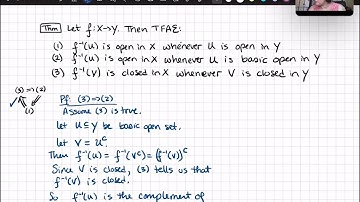 Thm Let f: X→Y. Then TFAE:
(1) f⁻¹(U) is open in X whenever U is open in Y
(2) f⁻¹(U) is open in X whenever U is basic open in Y
(3) f⁻¹(V) is closed in X whenever V is closed in Y
(3) ⇒ (2)
(1)
Pf: (3)⇒(2)
Assume (3) is true.
Let U ⊆ Y be basic open set.
Let V = Uᶜ.
Then f⁻¹(U) = f⁻¹(Vᶜ) = (f⁻¹(V))ᶜ
Since V is closed, (3) tells us that
f⁻¹(V) is closed.
So f⁻¹(U) is the complement of